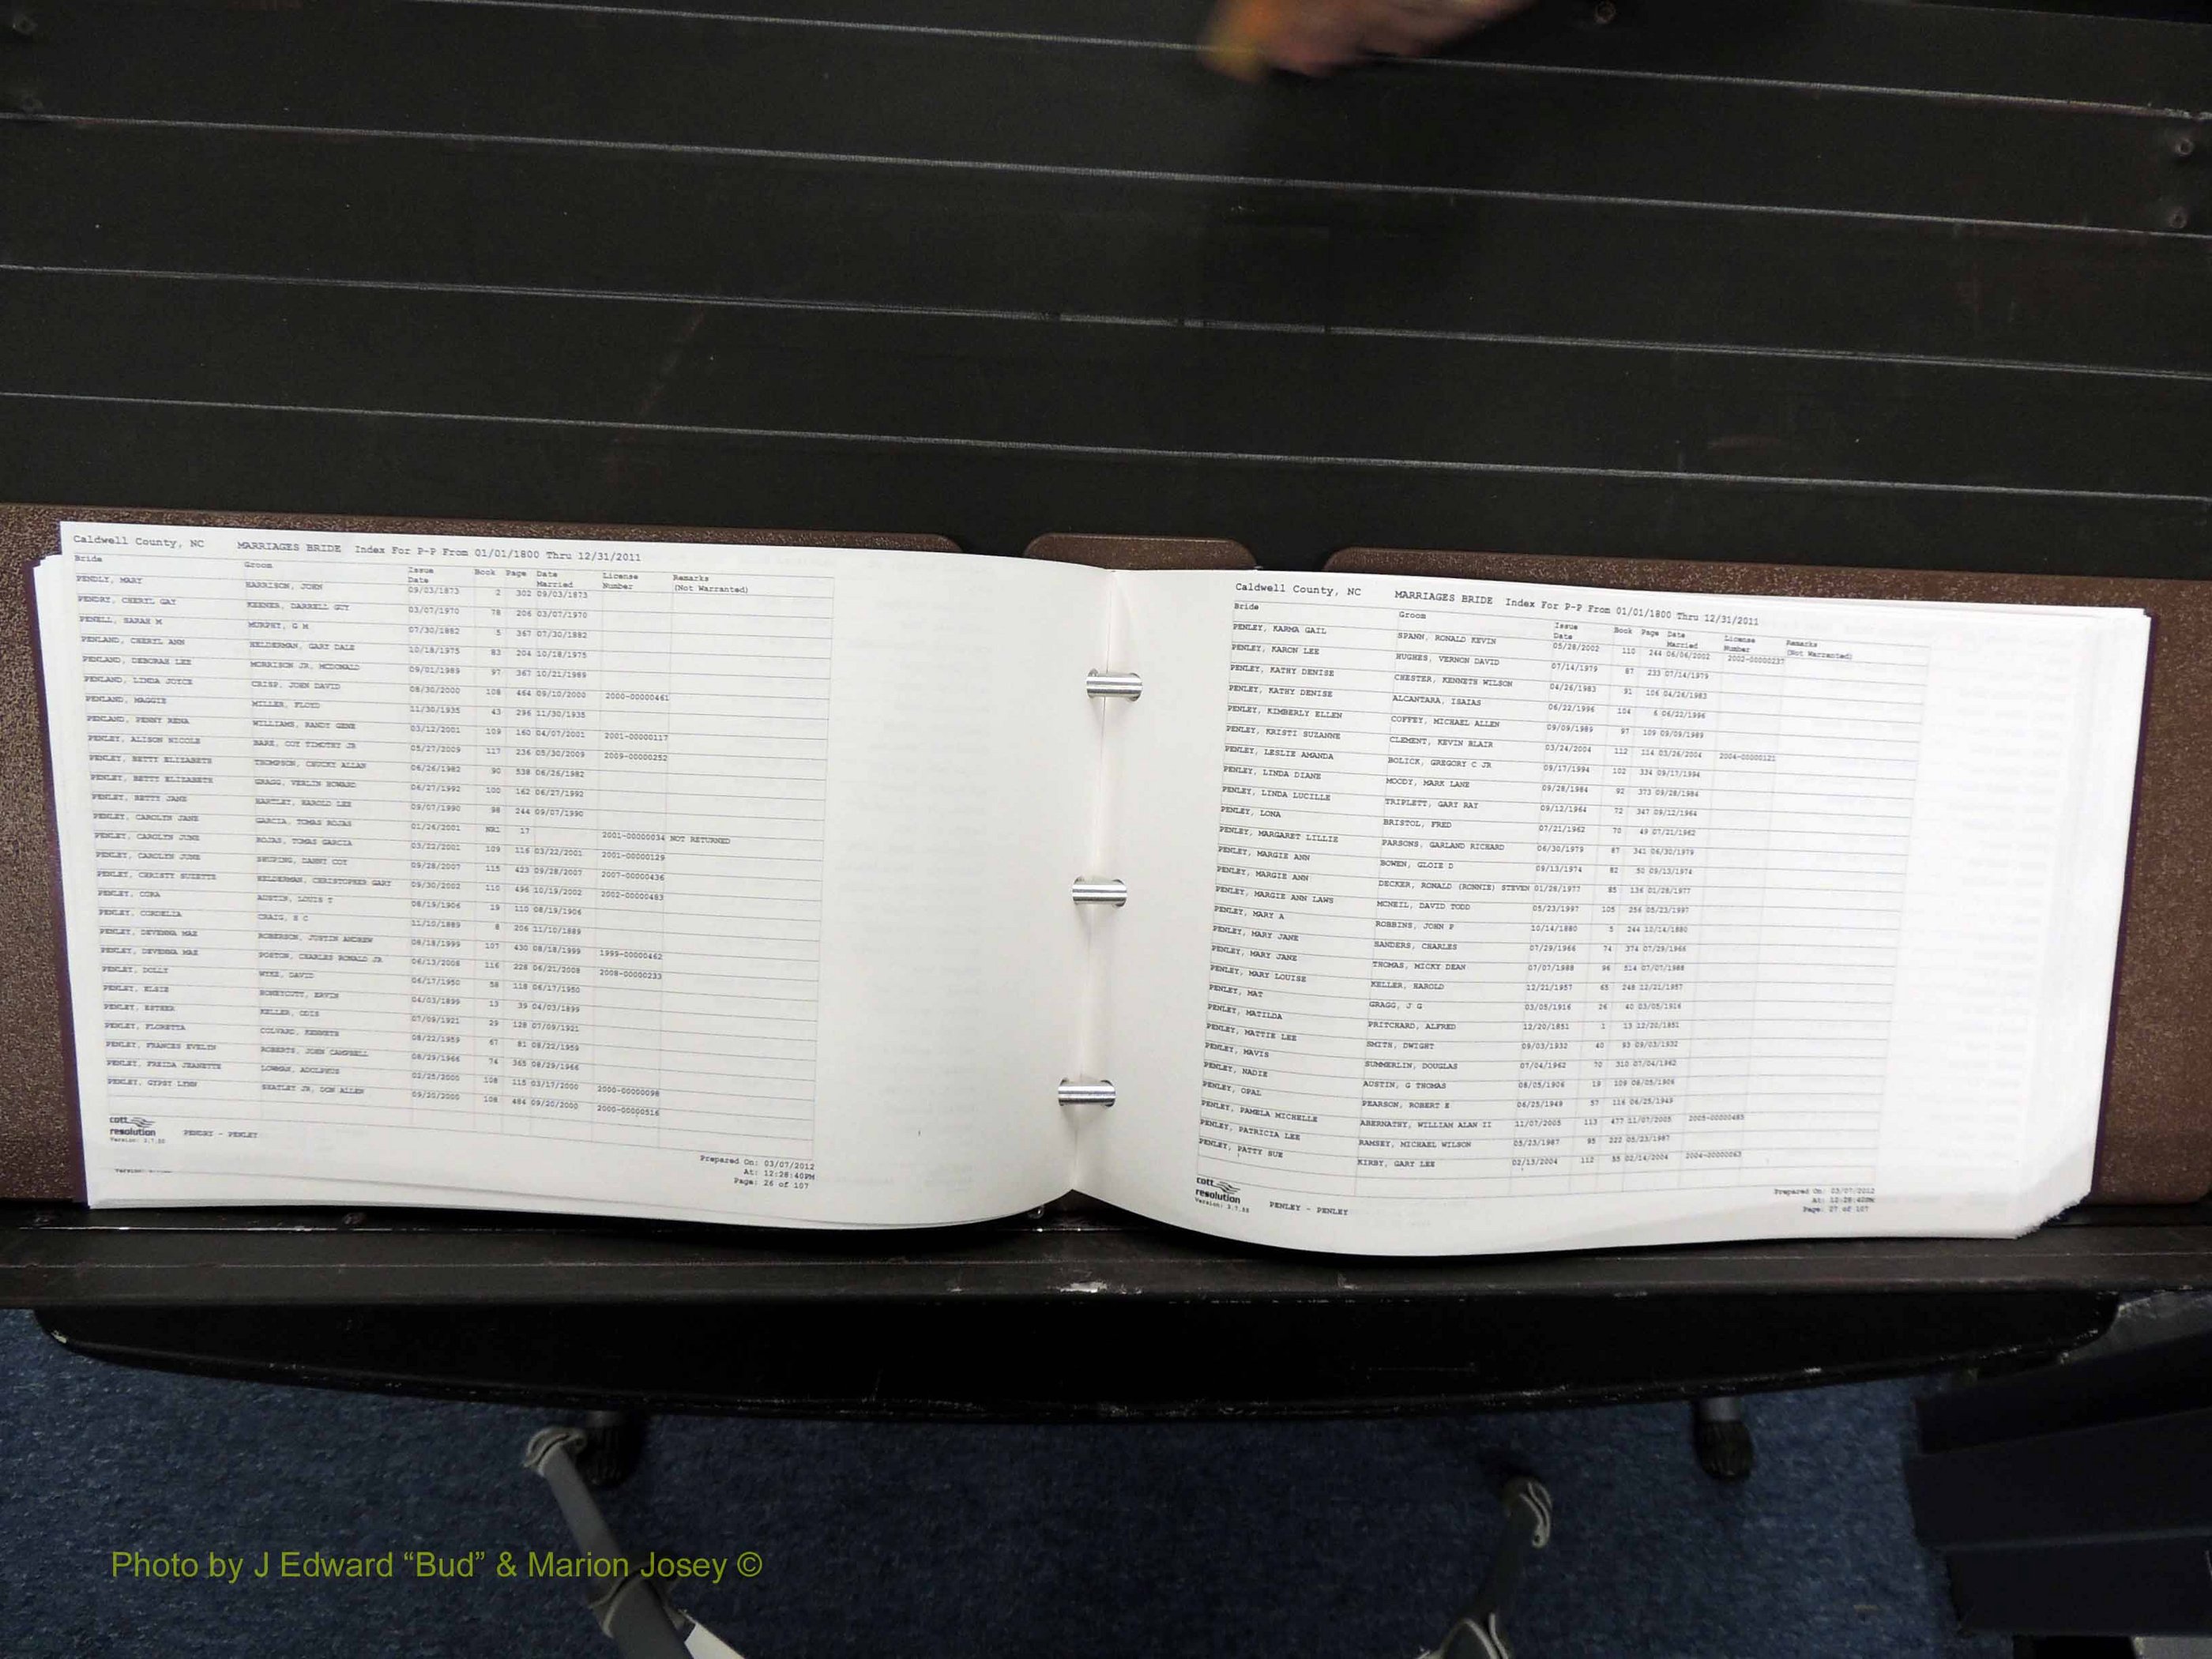 Caldwell County, NC MARRIAGES BRIDE Index For P-P From 01/01/1800 Thru 12/31/2011
Bride Groom Issue Date Book Page Date Married License Number Remarks (Not Warranted)
PENDLY, MARY HARRISON, JOHN 09/03/1873 2 302 09/03/1873
PENDRY, CHERYL GAY KEENER, DARRELL GUY 03/07/1970 78 206 03/07/1970
PENELL, SARAH M MURPHY, G M 07/30/1882 5 367 07/30/1882
PENLAND, CHERYL ANN HELDERMAN, GARY DALE 10/18/1975 83 204 10/18/1975
PENLAND, DEBORAH LEE MORRISON JR, MCDONALD 09/01/1989 97 367 10/21/1989
PENLAND, LINDA JOYCE CRISP, JOHN DAVID 08/30/2000 108 464 09/10/2000 2000-00000461
PENLAND, MAGGIE MILLER, FLOYD 11/30/1935 43 296 11/30/1935
PENLAND, PENNY RENA WILLIAMS, RANDY GENE 03/12/2001 109 160 04/07/2001 2001-00000117
PENLEY, ALISON NICOLE BARE, COY TIMOTHY JR 05/27/2009 117 236 05/30/2009 2009-00000252
PENLEY, BETTY ELIZABETH THOMPSON, CHUCKY ALLAN 06/26/1982 90 538 06/26/1982
PENLEY, BETTY ELIZABETH GRAGG, VERLIN HOWARD 06/27/1992 100 162 06/27/1992
PENLEY, BETTY JANE HARTLEY, HAROLD LEE 09/07/1990 98 244 09/07/1990
PENLEY, CAROLYN JANE GARCIA, TOMAS ROJAS 01/26/2001 NR1 17 2001-00000034 NOT RETURNED
PENLEY, CAROLYN JUNE ROJAS, TOMAS GARCIA 03/22/2001 109 116 03/22/2001 2001-00000129
PENLEY, CAROLYN JUNE SHUPING, DANNY COY 09/28/2007 115 423 09/28/2007 2007-00000436
PENLEY, CHRISTY SUZETTE HELDERMAN, CHRISTOPHER GARY 09/30/2002 110 496 10/19/2002 2002-00000483
PENLEY, CORA AUSTIN, LOUIS T 08/19/1906 19 110 08/19/1906
PENLEY, CORDELLA CRAIG, S C 11/10/1889 8 206 11/10/1889
PENLEY, DEVENNA MAE ROBERSON, JUSTIN ANDREW 08/18/1999 107 430 08/18/1999 1999-00000462
PENLEY, DEVENNA MAE POSTON, CHARLES RONALD JR 06/13/2008 116 228 06/21/2008 2008-00000233
PENLEY, DOLLY WYKE, DAVID 06/17/1950 58 118 06/17/1950
PENLEY, ELSIE HONEYCUTT, ERVIN 04/03/1899 13 39 04/03/1899
PENLEY, ESTHER KELLER, ODIS 07/09/1921 29 128 07/09/1921
PENLEY, FLORETTA COLVARD, KENNETH 08/22/1959 67 81 08/22/1959
PENLEY, FRANCES EVELYN ROBERTS, JOHN CAMPBELL 08/29/1966 74 365 08/29/1966
PENLEY, FREIDA JEANETTE LOWMAN, ADOLPHUS 02/25/2000 108 115 03/17/2000 2000-00000098
PENLEY, GYPSY LYNN SEATLEY JR, DON ALLEN 09/20/2000 108 484 09/20/2000 2000-00000516
cott
resolution PENDRY - PENLEY
Version: 3.7.50
Prepared On: 03/07/2012
At: 12:28:40PM
Page: 26 of 107
Caldwell County, NC MARRIAGES BRIDE Index For P-P From 01/01/1800 Thru 12/31/2011
Bride Groom Issue Date Book Page Date Married License Number Remarks (Not Warranted)
PENLEY, KARMA GAIL SPANN, RONALD KEVIN 05/28/2002 110 244 06/06/2002 2002-00000237
PENLEY, KARON LEE HUGHES, VERNON DAVID 07/14/1979 87 233 07/14/1979
PENLEY, KATHY DENISE CHESTER, KENNETH WILSON 04/26/1983 91 106 04/26/1983
PENLEY, KATHY DENISE ALCANTARA, ISAIAS 06/22/1996 104 6 06/22/1996
PENLEY, KIMBERLY ELLEN COFFEY, MICHAEL ALLEN 09/09/1989 97 109 09/09/1989
PENLEY, KRISTI SUZANNE CLEMENT, KEVIN BLAIR 03/24/2004 112 114 03/26/2004 2004-00000121
PENLEY, LESLIE AMANDA BOLICK, GREGORY C JR 09/17/1994 102 334 09/17/1994
PENLEY, LINDA DIANE MOODY, MARK LANE 09/28/1984 92 373 09/28/1984
PENLEY, LINDA LUCILLE TRIPLETT, GARY RAY 09/12/1964 72 347 09/12/1964
PENLEY, LONA BRISTOL, FRED 07/21/1962 70 49 07/21/1962
PENLEY, MARGARET LILLIE PARSONS, GARLAND RICHARD 06/30/1979 87 341 06/30/1979
PENLEY, MARGIE ANN BOWEN, GLOIE D 09/13/1974 82 50 09/13/1974
PENLEY, MARGIE ANN DECKER, RONALD (RONNIE) STEVEN 01/28/1977 85 136 01/28/1977
PENLEY, MARGIE ANN LAWS MCNEIL, DAVID TODD 05/23/1997 105 256 05/23/1997
PENLEY, MARY A ROBBINS, JOHN P 10/14/1880 5 244 10/14/1880
PENLEY, MARY JANE SANDERS, CHARLES 07/29/1966 74 374 07/29/1966
PENLEY, MARY JANE THOMAS, MICKY DEAN 07/07/1988 96 514 07/07/1988
PENLEY, MARY LOUISE KELLER, HAROLD 12/21/1957 65 248 12/21/1957
PENLEY, MAT GRAGG, J G 03/05/1916 26 40 03/05/1916
PENLEY, MATILDA PRITCHARD, ALFRED 12/20/1851 1 13 12/20/1851
PENLEY, MATTIE LEE SMITH, DWIGHT 09/03/1932 40 93 09/03/1932
PENLEY, MAVIS SUMMERLIN, DOUGLAS 07/04/1962 70 310 07/04/1962
PENLEY, NADIE AUSTIN, G THOMAS 08/05/1906 19 109 08/05/1906
PENLEY, OPAL PEARSON, ROBERT E 06/25/1949 57 116 06/25/1949
PENLEY, PAMELA MICHELLE ABERNATHY, WILLIAM ALAN II 11/07/2005 113 477 11/07/2005 2005-00000485
PENLEY, PATRICIA LEE RAMSEY, MICHAEL WILSON 05/23/1987 95 222 05/23/1987
PENLEY, PATTY SUE KIRBY, GARY LEE 02/13/2004 112 55 02/14/2004 2004-00000063
cott
resolution PENLEY - PENLEY
Version: 3.7.50
Prepared On: 03/07/2012
At: 12:28:40PM
Page: 27 of 107
Photo by J Edward “Bud” & Marion Josey ©